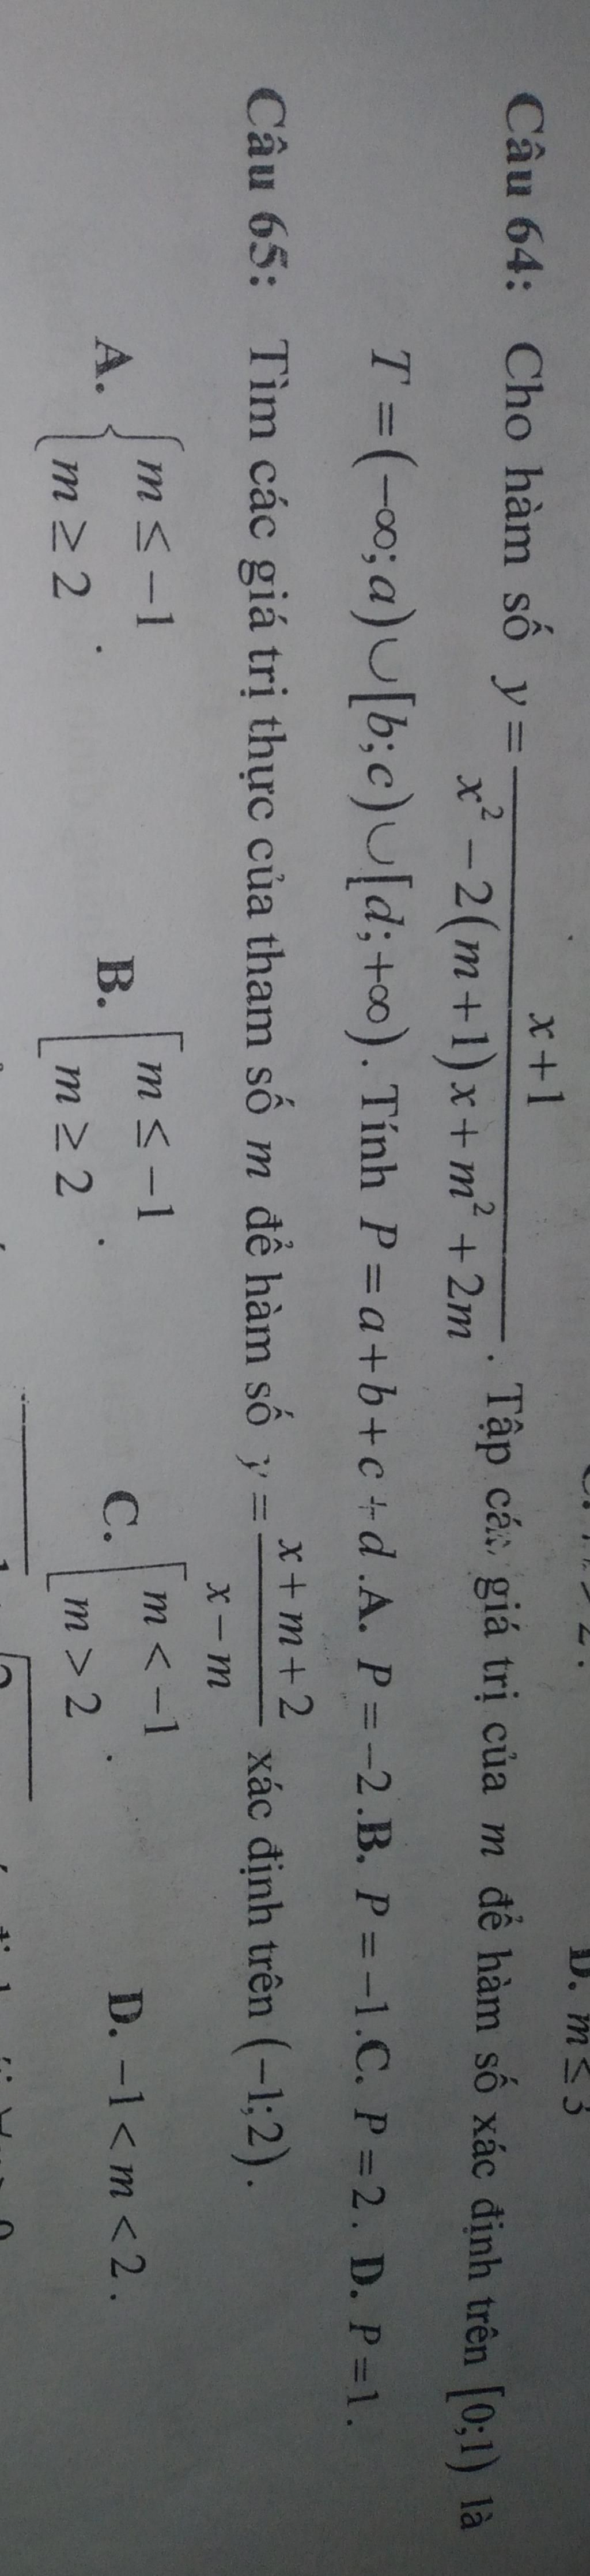 D. m ≤ 3
Câu 64: Cho hàm số y = (x+1)/(x² − 2(m+1)x + m² + 2m). Tập các giá trị của m để hàm số xác định trên [0;1) là
T = (−∞;a)∪[b;c)∪[d;+∞). Tính P = a+b+c+d.A. P = −2.B. P = −1.C. P = 2. D. P = 1.
Câu 65: Tìm các giá trị thực của tham số m để hàm số y = (x+m+2)/(x−m) xác định trên (−1;2).
A. { m ≤ −1 m ≥ 2 . B. [ m ≤ −1 m ≥ 2 . C. [ m < −1 m > 2 . D. −1 < m < 2.